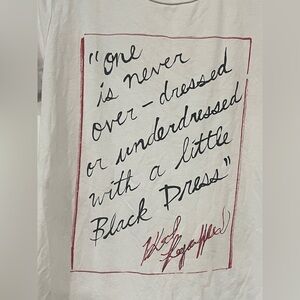 "One
is never
over-dressed
or underdressed
with a little
Black Dress"
Karl
Lagerfeld